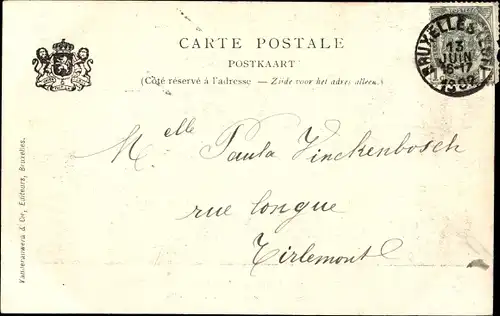 CARTE POSTALE
POSTKAART
(Côté réservé à l'adresse — Zijde voor het adres alleen.)
BRUXELLES
13
JUIN
Melle Paula Vinckenbosch
rue longue
Tirlemont
& Cie, Editeurs, Bruxelles.